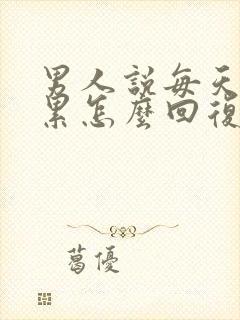 男人說每天
累怎麼回復
葛優